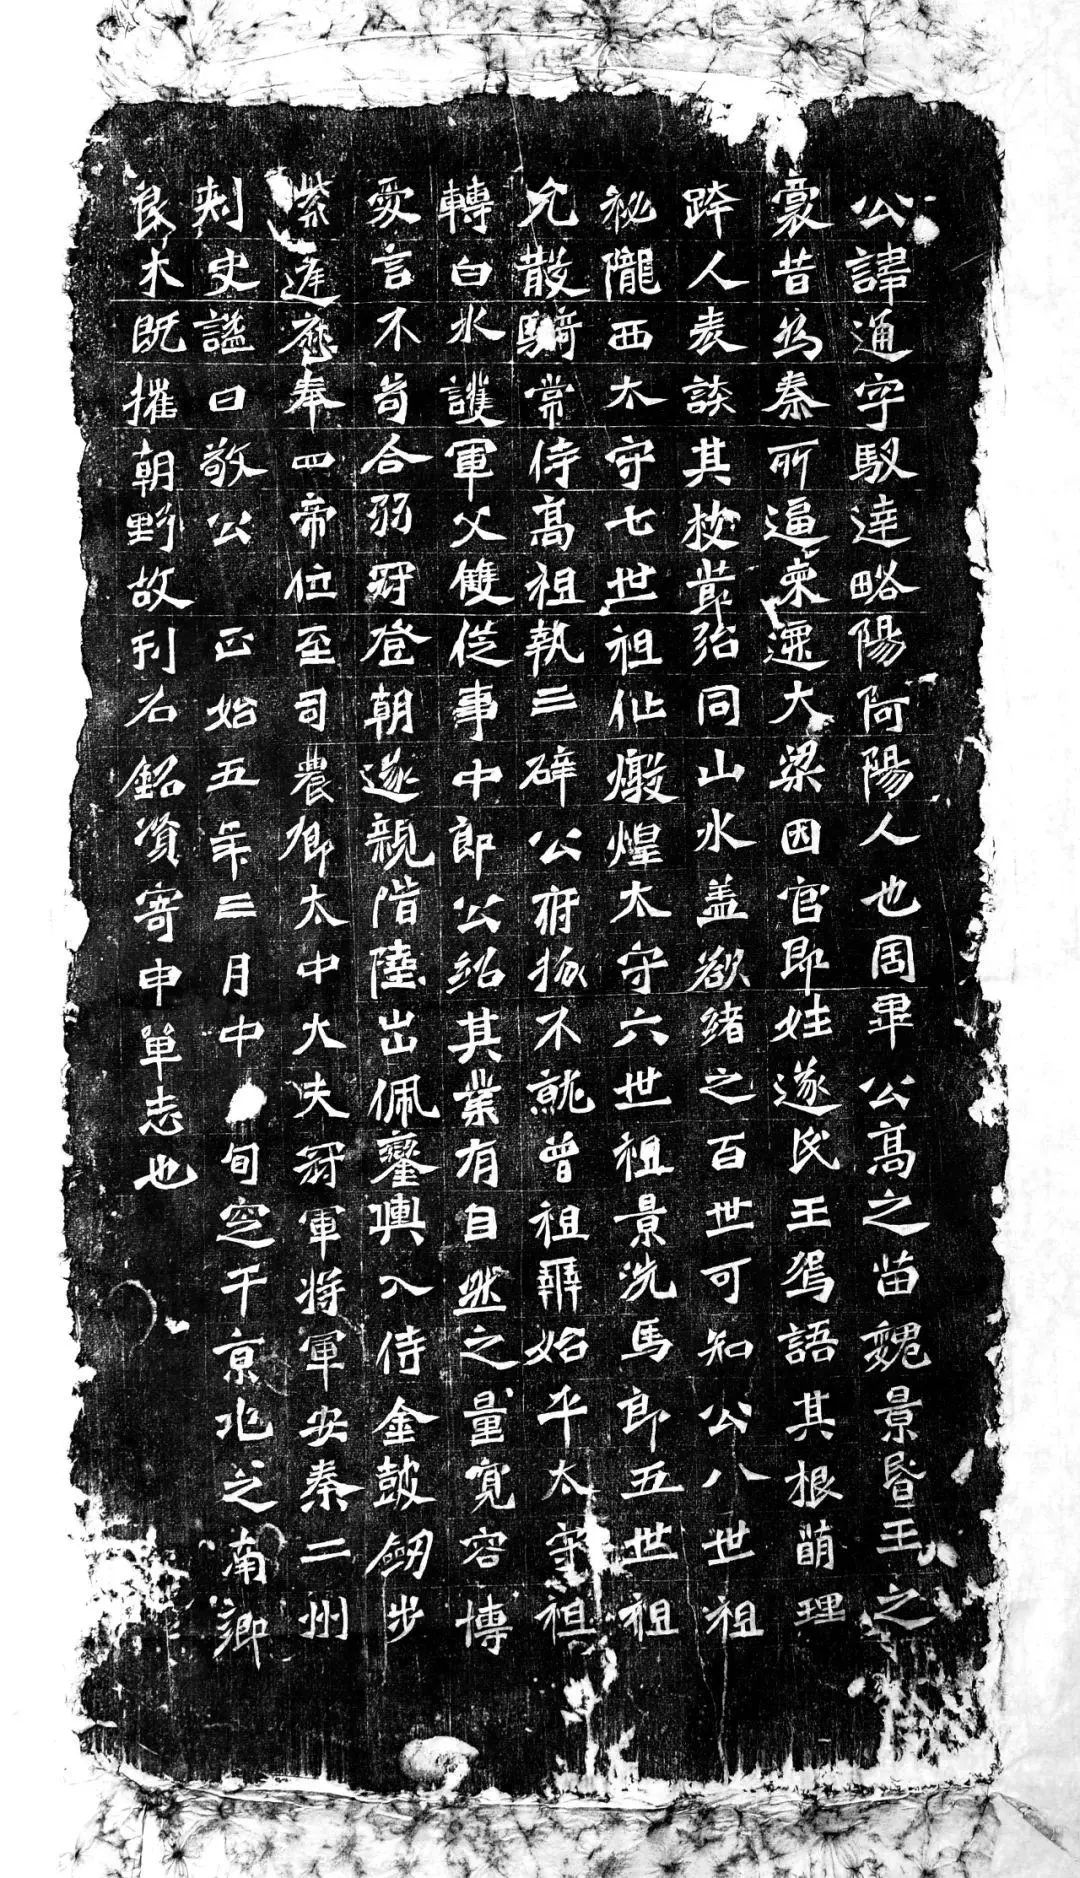 公諱通字馭達略陽阿陽人也周畢公高之苗魏景昬王之
豪昔為秦所逼東遷大梁因官即姓遂氏王焉語其根萌理
跨人表談其枝葉殆同山水盖欲緒之百世可知公八世祖
祕隴西太守七世祖仳燉煌太守六世祖景洗馬郎五世祖
允散騎常侍高祖執三辟公府掾不就曾祖彝始平太守祖
轉白水護軍父雙從事中郎公紹其業有自然之量寬容博
愛言不苟合弱冠登朝遂親階陸出佩鑾輿入侍金鼓劒步
紫遲歷奉四帝位至司農卿太中大夫冠軍將軍安秦二州
刺史謚曰敬公 正始五年三月中旬窆于京兆之南鄉
良木既摧朝野故刊石銘贊寄申單志也